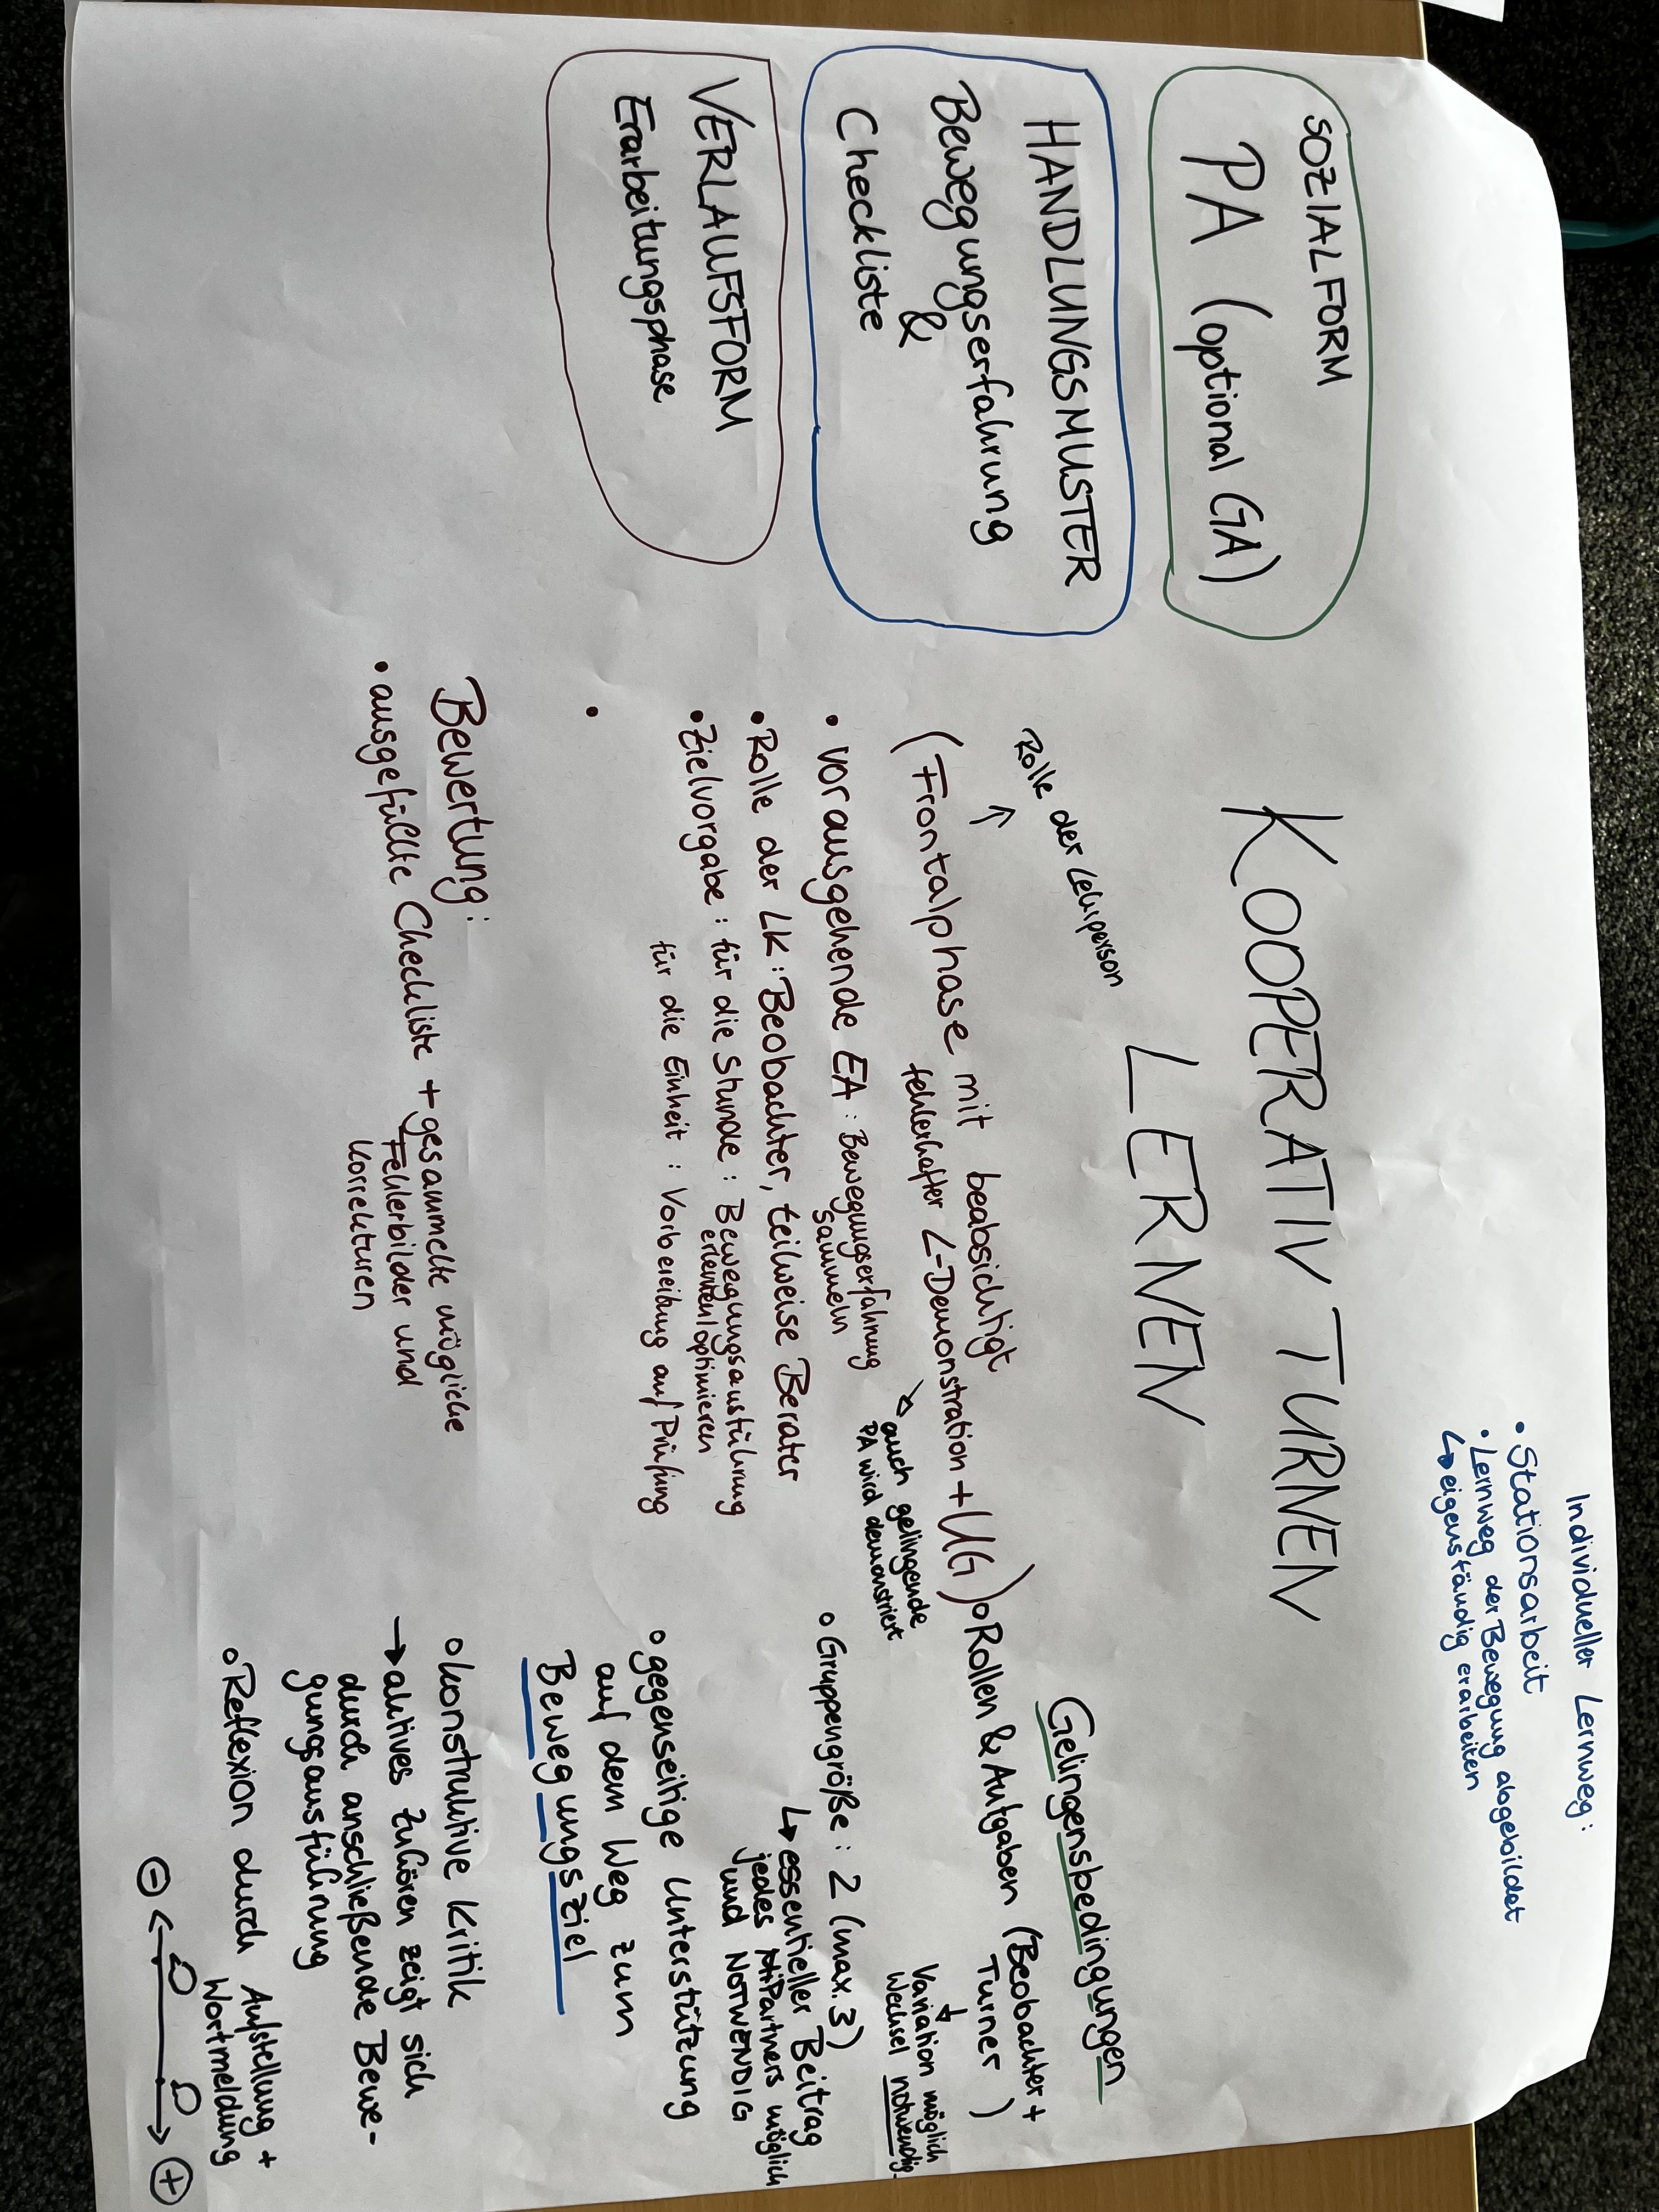 KOOPERATIV TURNEN
LERNEN
Individueller Lernweg:
• Stationsarbeit
• Lernweg der Bewegung abgebildet
↳ eigenständig erarbeiten
SOZIALFORM
PA (optional GA)
HANDLUNGSMUSTER
Bewegungserfahrung
&
Checkliste
VERLAUFSFORM
Erarbeitungsphase
Rolle der Lehrperson
↑
(Frontalphase mit beabsichtigt
fehlerhafter L-Demonstration + UG)
↳ auch gelingende
PA wird demonstriert
• vorausgehende EA: Bewegungserfahrung
sammeln
• Rolle der LK: Beobachter, teilweise Berater
• Zielvorgabe: für die Stunde: Bewegungsausführung
erlernen/optimieren
für die Einheit: Vorbereitung auf Prüfung
•
Bewertung:
• ausgefüllte Checkliste + gesammelte mögliche
Fehlerbilder und
Korrekturen
Gelingensbedingungen
o Rollen & Aufgaben (Beobachter +
Turner)
↓
Variation möglich
Wechsel notwendig
o Gruppengröße: 2 (max. 3)
↳ essentieller Beitrag
jedes Partners möglich
und NOTWENDIG
o gegenseitige Unterstützung
auf dem Weg zum
Bewegungsziel
o konstruktive Kritik
→ aktives Zuhören zeigt sich
durch anschließende Bewe-
gungsausführung
o Reflexion durch Aufstellung +
Wortmeldung
⊖ ⊕